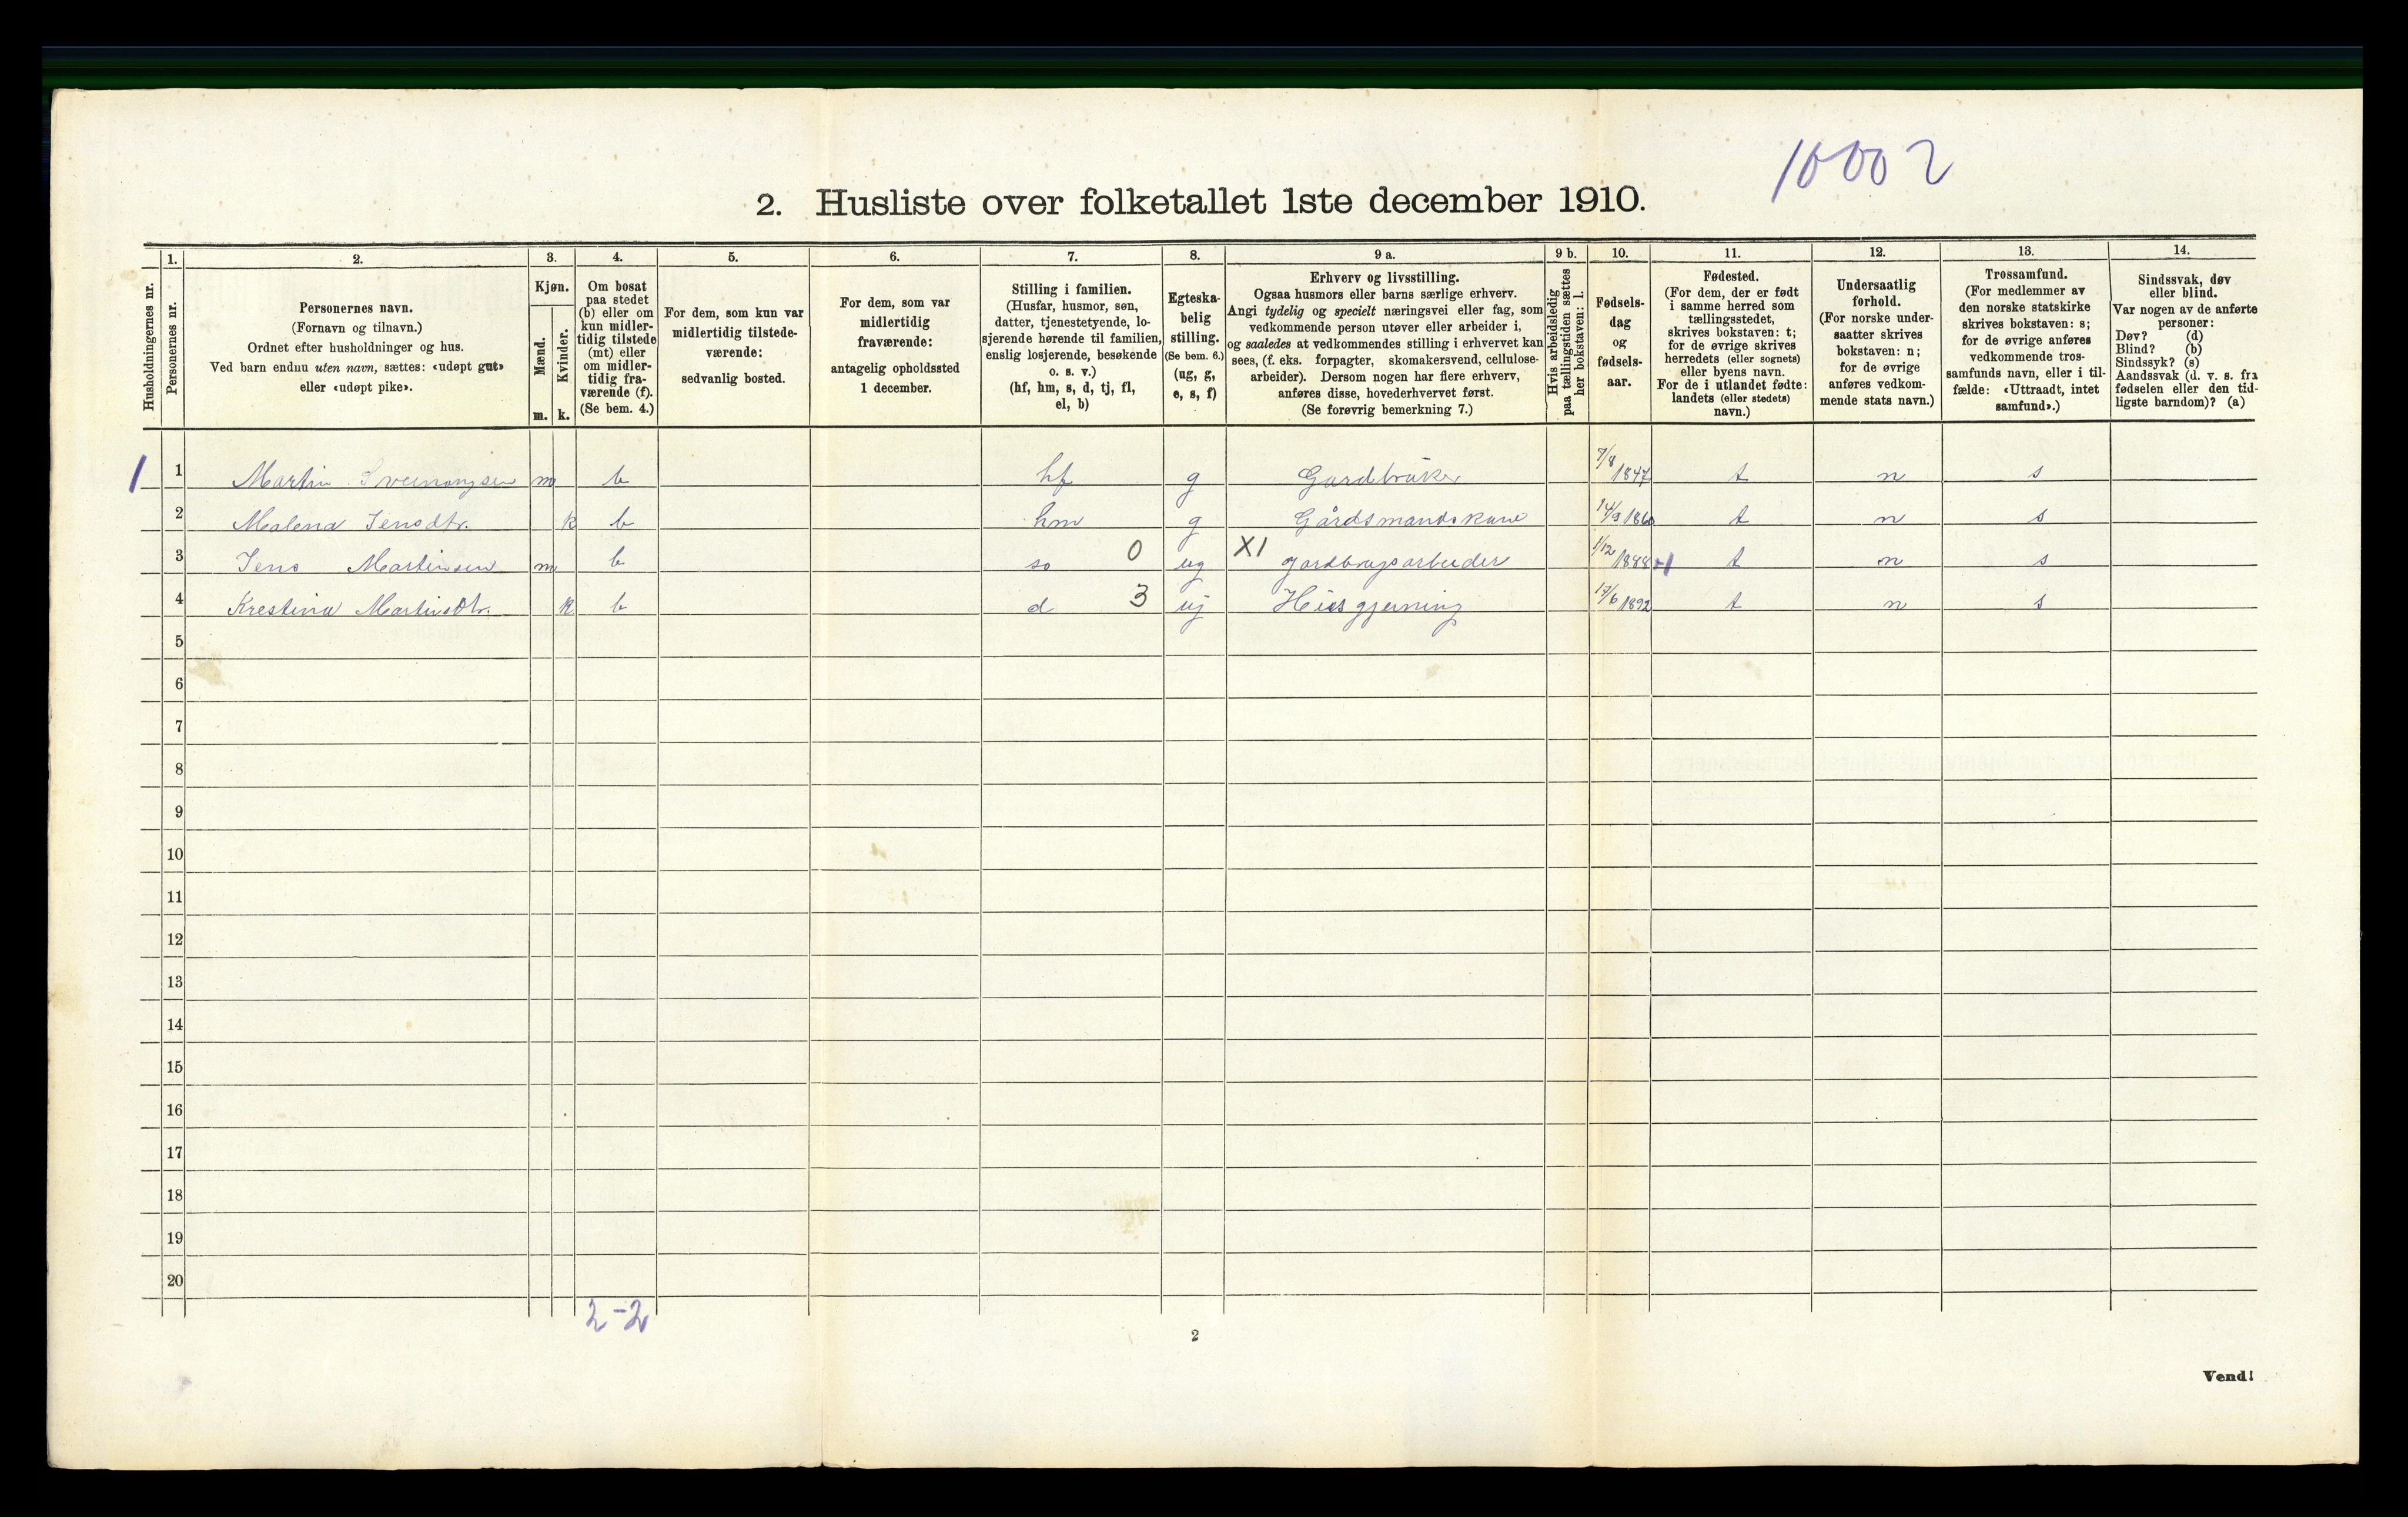 10002
2. Husliste over folketallet 1ste december 1910.
Husholdningernes nr.
1.
Personernes nr.
2.
Personernes navn.
(Fornavn og tilnavn.)
Ordnet efter husholdninger og hus.
Ved barn endnu uten navn, sættes: «udøpt gut»
eller «udøpt pike».
3.
Kjøn.
Mænd.
m.
Kvinder.
k.
4.
Om bosat
paa stedet
(b) eller om
kun midler-
tidig tilstede
(mt) eller
om midler-
tidig fra-
værende (f).
(Se bem. 4.)
5.
For dem, som kun var
midlertidig tilstede-
værende:
sedvanlig bosted.
6.
For dem, som var
midlertidig
fraværende:
antagelig opholdssted
1 december.
7.
Stilling i familien.
(Husfar, husmor, søn,
datter, tjenestetyende, lo-
sjerende hørende til familien,
enslig losjerende, besøkende
o. s. v.)
(hf, hm, s, d, tj, fl,
el, b)
8.
Egteska-
belig
stilling.
(Se bem. 6.)
(ug, g,
e, s, f)
9 a.
Erhverv og livsstilling.
Ogsaa husmors eller barns særlige erhverv.
Angi tydelig og specielt næringsvei eller fag, som
vedkommende person utøver eller arbeider i,
og saaledes at vedkommendes stilling i erhvervet kan
sees, (f. eks. forpagter, skomakersvend, cellulose-
arbeider). Dersom nogen har flere erhverv,
anføres disse, hovederhvervet først.
(Se forøvrig bemerkning 7.)
9 b.
Hvis arbeidsledig
paa tællingstiden sættes
her bokstaven: l.
10.
Fødsels-
dag
og
fødsels-
aar.
11.
Fødested.
(For dem, der er født
i samme herred som
tællingsstedet,
skrives bokstaven: t;
for de øvrige skrives
herredets (eller sognets)
eller byens navn.
For de i utlandet fødte:
landets (eller stedets)
navn.)
12.
Undersaatlig
forhold.
(For norske under-
saatter skrives
bokstaven: n;
for de øvrige
anføres vedkom-
mende stats navn.)
13.
Trossamfund.
(For medlemmer av
den norske statskirke
skrives bokstaven: s;
for de øvrige anføres
vedkommende tros-
samfunds navn, eller i til-
fælde: «Uttraadt, intet
samfund».)
14.
Sindssvak, døv
eller blind.
Var nogen av de anførte
personer:
Døv? (d)
Blind? (b)
Sindssyk? (s)
Aandssvak (d. v. s. fra
fødselen eller den tid-
ligste barndom)? (a)
1 1 Martin Sveinongsen m b hf g Gardbruker 7/8 1847 t n s
2 Malena Jensdtr. k b hm g Gårdsmandskone 14/9 1860 t n s
3 Jens Martinsen m b so 0 ug X1 gardbrugsarbeider 1/12 1888 +1 t n s
4 Krestina Martinsdtr. k b d 3 ug Husgjerning 17/6 1892 t n s
5
6
7
8
9
10
11
12
13
14
15
16
17
18
19
20
2-2
2
Vend!